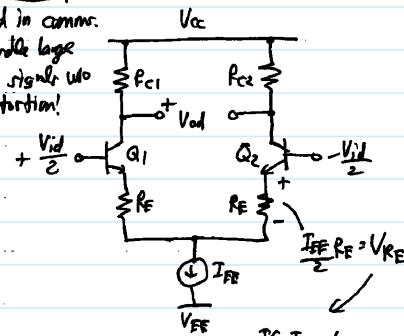 d in comms.
Vcc
ndle large
signals w/o
tortion!
RC1
RC2
+ Vod
+ Vid/2
Q1
Q2
-Vid/2
+
RE
RE
-
IEE/2 RE = VRE
IEE
VEE